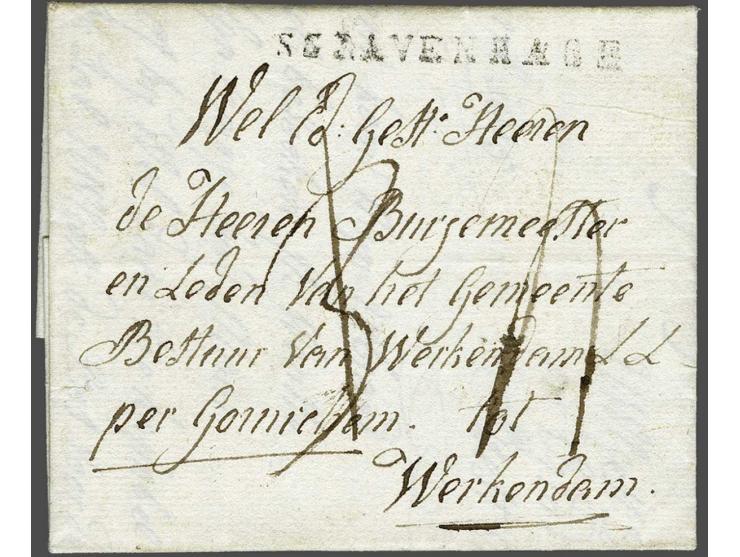 SGRAVENHAGE
Wel Ed: Gestr. Heeren
de Heeren Burgemeester
en Leden Van het Gemeente
Bestuur Van Werkendam LL
per Gornichem. tot
Werkendam.